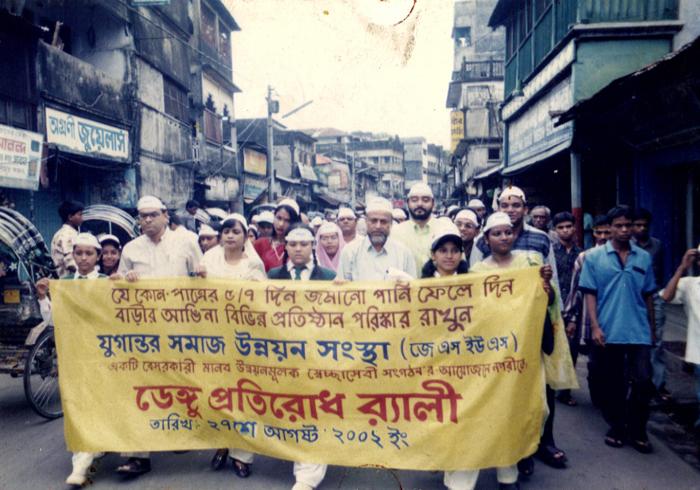 অগ্রণী জুয়েলার্স
যে কোন পাত্রের ৫/৭ দিন জমানো পানি ফেলে দিন
বাড়ীর আঙিনা বিভিন্ন প্রতিষ্ঠান পরিস্কার রাখুন
যুগান্তর সমাজ উন্নয়ন সংস্থা (জে এস ইউ এস)
একটি বেসরকারী মানব উন্নয়নমূলক স্বেচ্ছাসেবী সংগঠন'র আয়োজনে নগরীতে
ডেঙ্গু প্রতিরোধ র‍্যালী
তারিখ: ২৭শে আগষ্ট ২০০২ ইং